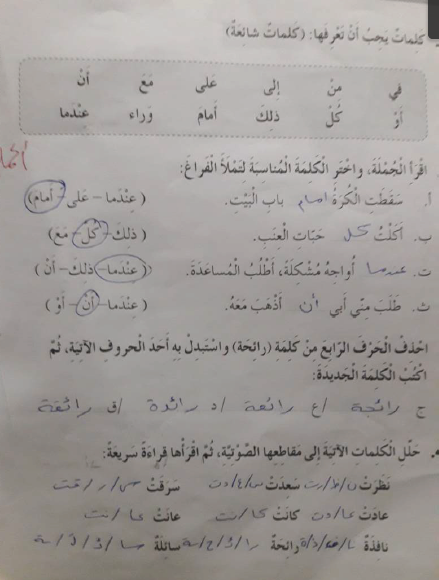 كَلِماتٌ يَجِبُ أَنْ تَعْرِفَها: (كَلِماتٌ شائِعَةٌ)
في مِنْ إِلى عَلى مَعَ أَنْ
أَوْ كُلّ ذلِكَ أَمامَ وَراء عِنْدَما
اقْرَأِ الْجُمْلَةَ، واخْتَرِ الْكَلِمَةَ الْمُناسَبَةَ لِتَمْلَأَ الْفَراغَ:
أ. سَقَطَتِ الْكُرَةُ امام بابِ الْبَيْتِ. (عِنْدَما - عَلى - أَمامَ)
ب. أَكَلْتُ كل حَبّاتِ الْعِنَبِ. (ذلِكَ - كُلّ - مَعَ)
ت. عندما أُواجِهُ مُشْكِلَةً، أَطْلُبُ الْمُساعَدَةَ. (عِنْدَما - ذلِكَ - أَنْ)
ث. طَلَبَ مِنّي أَبي أن أَذْهَبَ مَعَهُ. (عِنْدَما - أَنْ - أَوْ)
احْذِفْ الْحَرْفَ الرّابِعَ مِنْ كَلِمَةِ (رائِحَة) واسْتَبدِلْ بِهِ أَحَدَ الْحروفِ الآتِيَةِ، ثُمَّ
اكْتُبْ الْكَلِمَةَ الْجَديدَةَ:
ج رائجة /ع رائعة /د رائدة /ق رائقة
حَلّلِ الْكَلِماتِ الآتِيَةَ إِلى مَقاطِعِها الصَّوْتِيَّةِ، ثُمَّ اقْرَأْها قِراءَةً سَريعَةً:
نَظَرَتْ ن/ظ/رت سَعِدَتْ س/ع/دت سَرَقَتْ س/ر/قت
عادَتْ عا/دت كانَتْ كا/نت عانَتْ عا/نت
نافِذَةٌ نا/ف/ذة رائِحَةٌ را/ئ/حة سائِلَةٌ